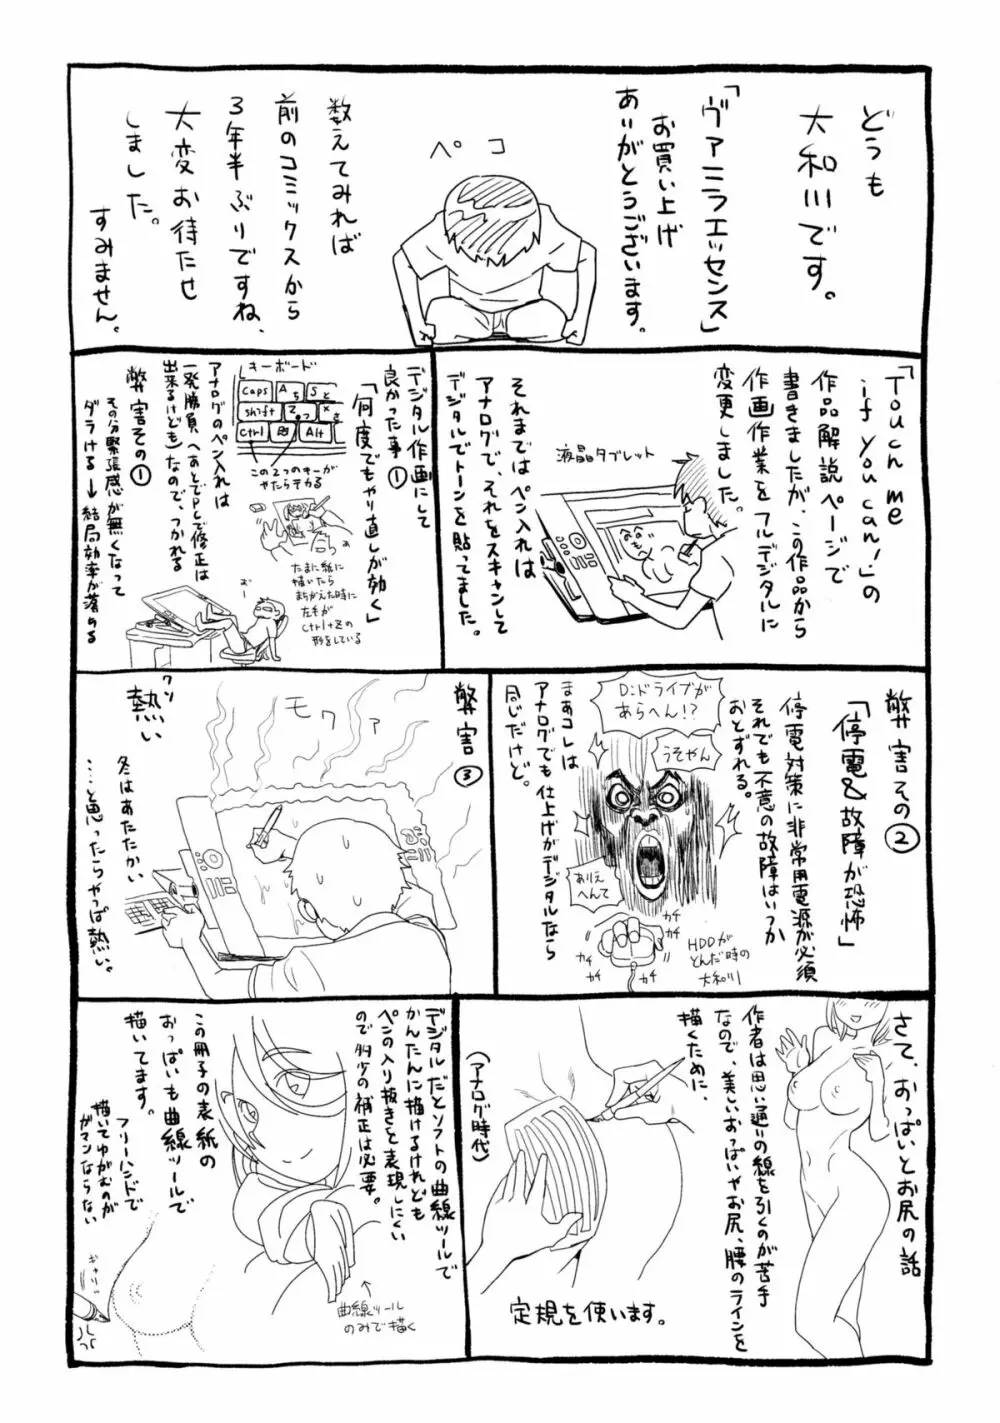 どうも
大和川です。
「ヴァニラエッセンス」
お買い上げ
ありがとうございます。
ペコ
数えてみれば
前のコミックスから
3年半ぶりですね、
大変お待たせ
しました。
すみません。
「Touch me
if you can!」の
作品解説ページで
書きましたが、この作品から
作画作業をフルデジタルに
変更しました。
液晶タブレット
それまではペン入れは
アナログで、それをスキャンして
デジタルでトーンを貼ってました。
デジタル作画にして
良かった事①
「何度でもやり直しが効く」
キーボード
Caps
A
ち
S
と
shift
Z
っ
X
さ
Ctrl
Alt
この2つのキーが
やたらテカる
たまに紙に
描いたら
まちがえた時に
左手が
Ctrl+Zの
形をしている
アナログのペン入れは
一発勝負(あとでトレで修正は
出来るけども)なので、つかれる
弊害その①
その分緊張感が無くなって
ダラける→結局効率が落ちる
弊害その②
「停電&故障が恐怖」
停電対策に非常用電源が必須
それでも不意の故障はいつか
おとずれる。
D:ドライブが
あらへん!?
うそやん
ありえ
へんて
カチ
カチ
カチ
カチ
カチ
HDDが
とんだ時の
大和川
まあコレは
アナログでも仕上げがデジタルなら
同じだけど。
弊害③
モワァ
熱い
冬はあたたかい
……と思ったらやっぱ熱い。
さて、おっぱいとお尻の話
作者は思い通りの線を引くのが苦手
なので、美しいおっぱいやお尻、腰のラインを
描くために、
(アナログ時代)
定規を使います。
デジタルだとソフトの曲線ツールで
かんたんに描けるけれども
ペンの入り抜きを表現しにくい
ので多少の補正は必要。
曲線ツール
のみで描く
この冊子の表紙の
おっぱいも曲線ツールで
描いてます。
フリーハンドで
描いてゆがむのが
ガマンならない
ギャリ